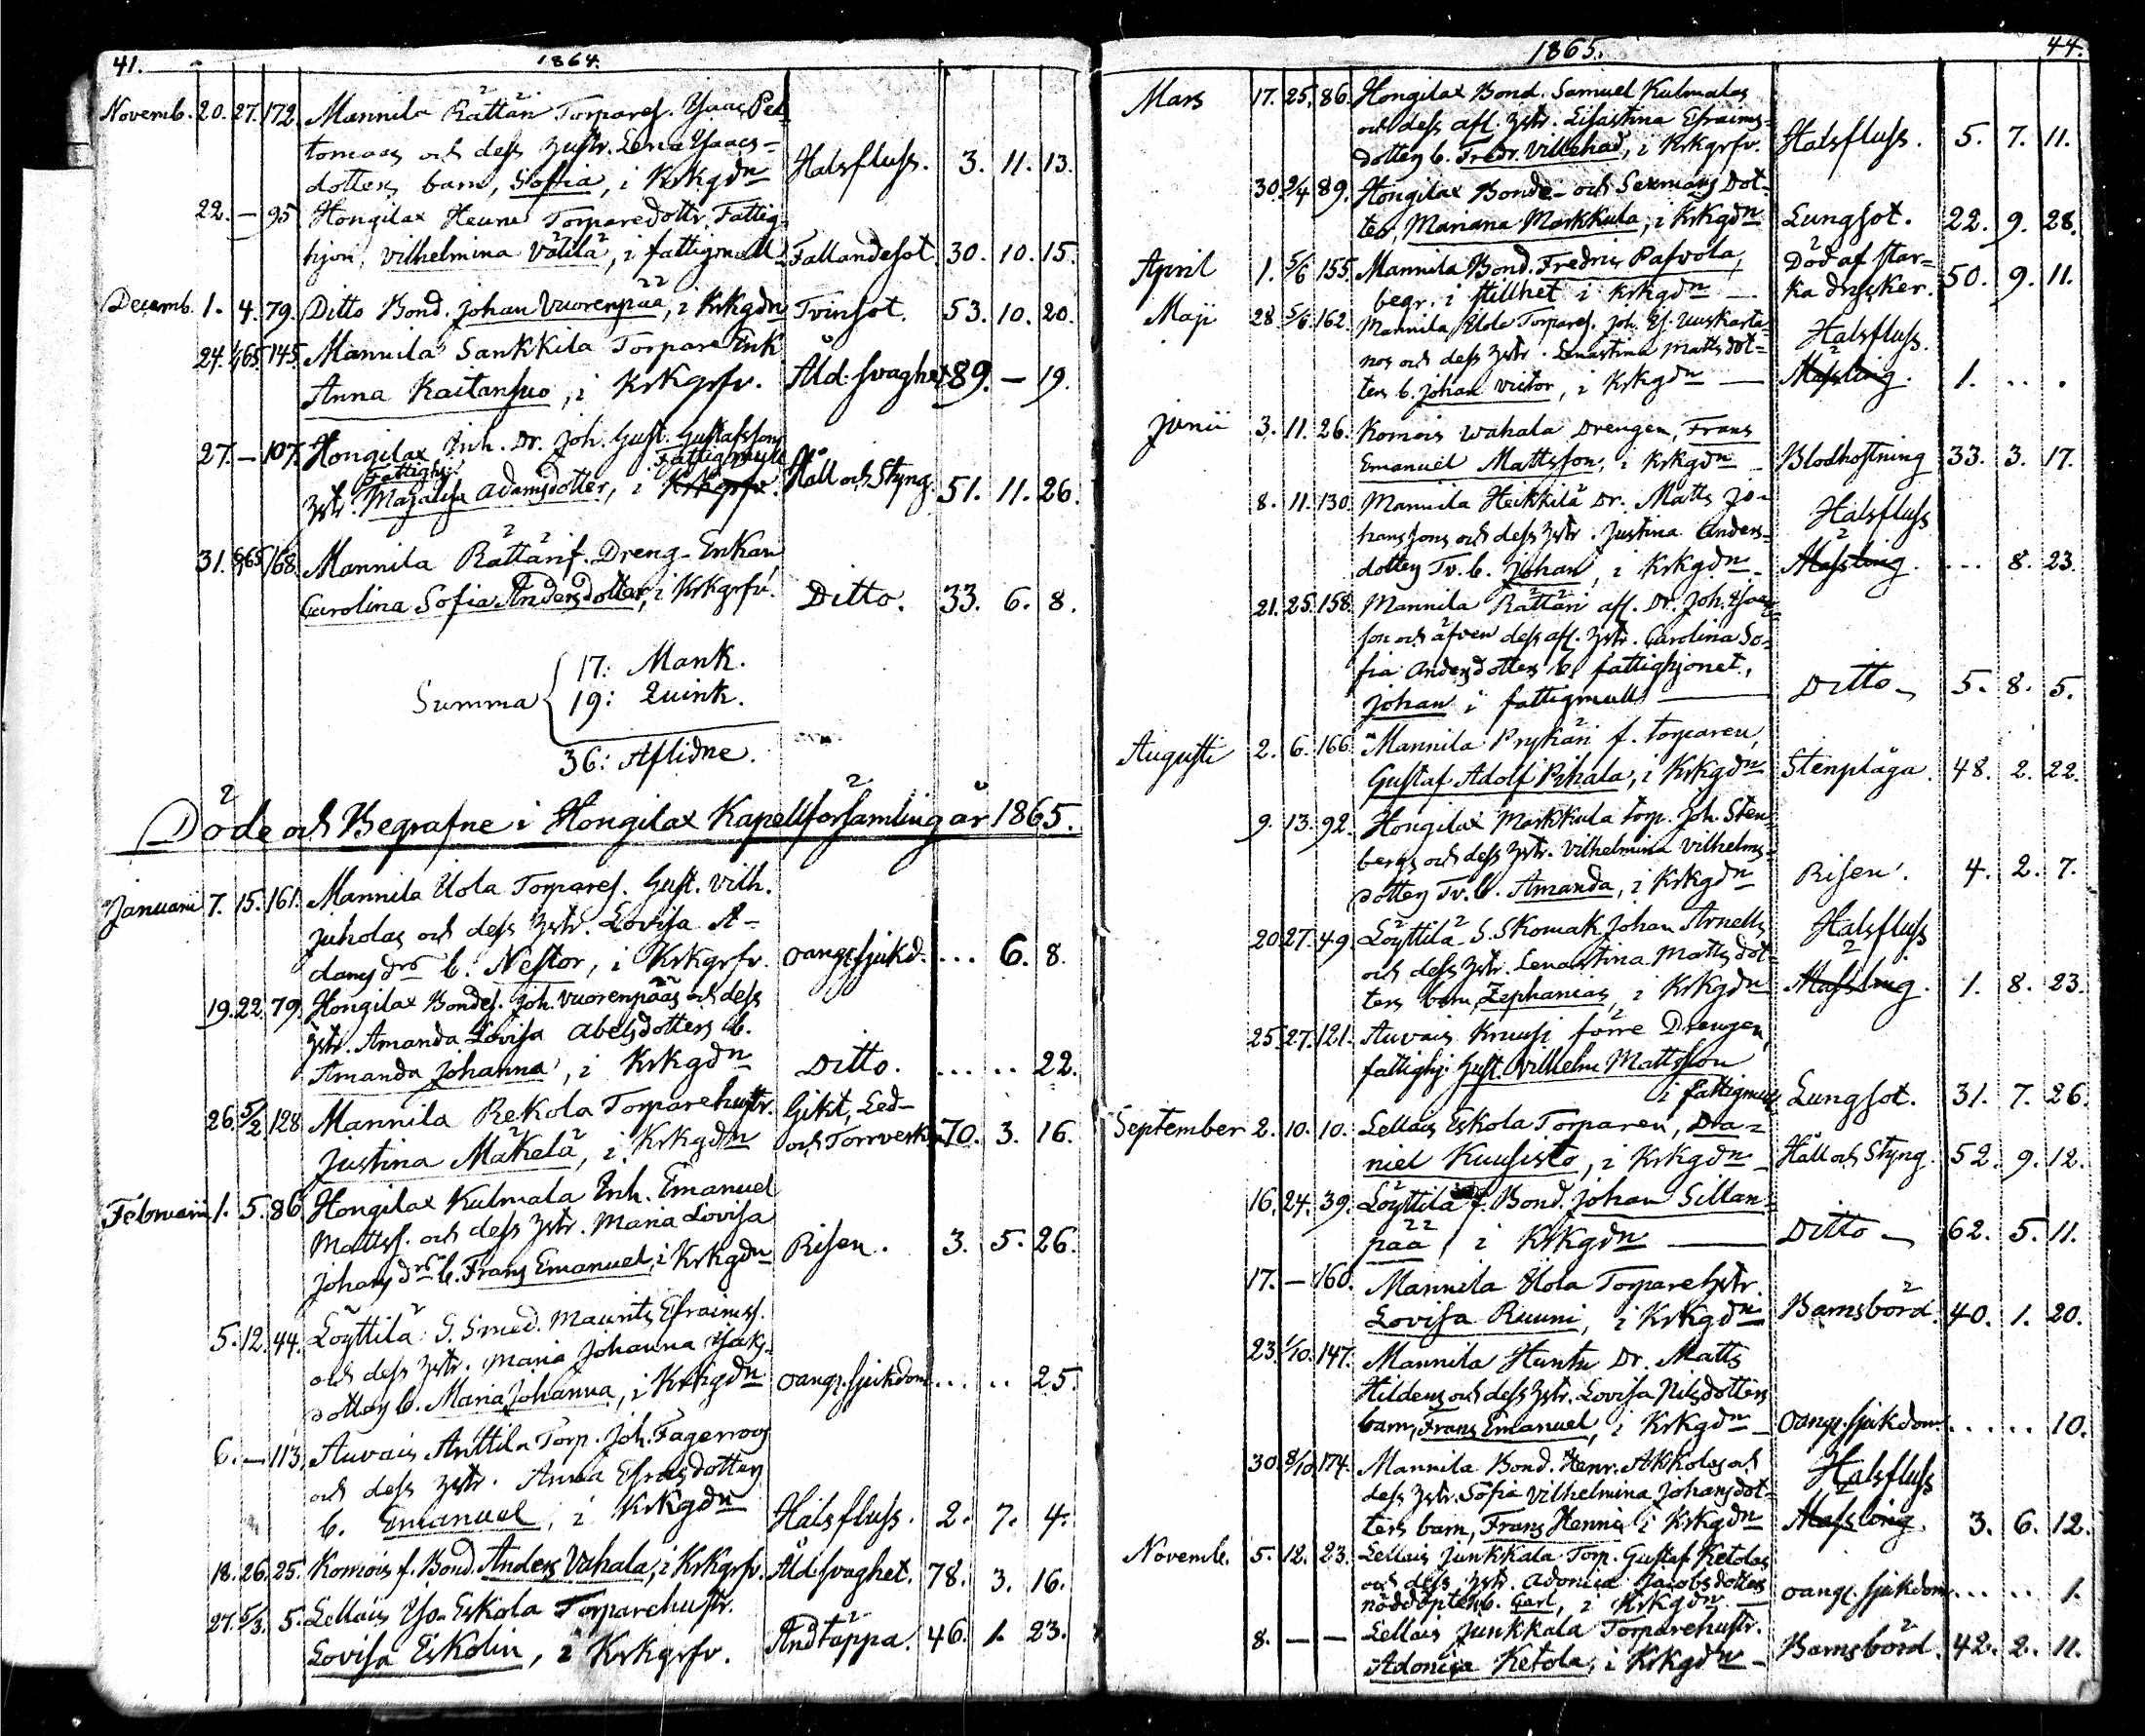 41. 1864.
Novemb. 20. 27. 172. Mannila Rättäri Torpares. Ysaac Pel
tomaas och dess hustr. Lena Ysaacs-
dotters barn, Sofia, i Krkgdn Halsfluss. 3. 11. 13.
22. — 95 Hongilax Torparedottr. Fattig
hjon, Vilhelmina Välilä, i fattigmull Fallandesot. 30. 10. 15.
Decemb. 1. 4. 79. Ditto Bond. Johan Vuorenpää, i Krkgdn Tvinsot. 53. 10. 20.
24. 1/1 65 145. Mannila Sankkila Torpare Enk
Anna Kaitansuo, i Krkgrfv. Åld. svaghet 89. — 19.
27. — 107. Hongilax Inh. Dr. Joh. Gust. Gustafssons
Fattighj. Fattigmull
hstr. Majalisa Adamsdotter, i Krkgrfv. Håll och Styng. 51. 11. 26.
31. 65 168. Mannila Rättäri f. Dreng-Enkan
Carolina Sofia Andersdotter, i Krkgrfv. Ditto. 33. 6. 8.
17: Mank.
Summa 19: Quink.
36: Aflidne.
Döde och Begrafne i Hongilax Kapellförsamling år 1865.
Januarii 7. 15. 161. Mannila Uola Torpares. Gust. Vilh.
Juholas och dess hstr. Lovisa A-
dams drs b. Nestor, i Krkgrfv. oang. sjukd. ... 6. 8.
19. 22. 79. Hongilax Bondes. Joh. Vuorenpääs och dess
hstr. Amanda Lovisa Abelsdotters b.
Amanda Johanna, i Krkgdn Ditto. ... .. 22.
26. 5/2 128 Mannila Rekola Torparehustr. Gikt, Led-
Justina Mäkelä, i Krkgdn och Torrverk 70. 3. 16.
Februarii 1. 5. 86 Hongilax Kulmala Inh. Emanuel
Mattss. och dess hstr. Maria Lovisa
Johans drs b. Frans Emanuel, i Krkgdn Risen. 3. 5. 26.
5. 12. 44. Löyttilä S. Smed. Maurits Efraimss.
och dess hstr. Maria Johanna Isaks-
dotters b. Maria Johanna, i Krkgdn oang. sjukdom ... .. 25.
6. — 113. Auvais Anttila Torp. Joh. Fagerroos
och dess hstr. Anna Esaiasdotters
b. Emanuel, i Krkgdn Halsfluss. 2. 7. 4.
18. 26. 25. Komois f. Bond. Anders Vahala, i Krkgrfv. Åld. svaghet. 78. 3. 16.
27. 5/3. 5. Lellais Yso-Eskola Torparehustr.
Lovisa Eskolin, i Krkgrfv. Andtäppa. 46. 1. 23.
1865. 44.
Mars 17. 25. 86. Hongilax Bond. Samuel Kulmalas
och dess afl. hstr. Lisastina Efraims-
dotters b. Fredr. Villehad, i Krkgrfv. Halsfluss. 5. 7. 11.
30. 2/4 89. Hongilax Bonde- och Sexmans Dot-
ter, Mariana Markkula, i Krkgdn Lungsot. 22. 9. 28.
April 1. 5/6 155. Mannila Bond. Fredric Pasvola, Död af star-
begr. i stillhet i Krkgdn — ka drycker. 50. 9. 11.
Maji 28 5/6. 162. Mannila Uola Torpares. Joh. Es. Uuskarta- Halsfluss.
nos och dess hstr. Lenastina Mattsdot-
ters b. Johan Victor, i Krkgdn — Mässling. 1. .. .
Junii 3. 11. 26. Komois Wahala Drengen, Frans
Emanuel Mattsson, i Krkgdn Blodhostning 33. 3. 17.
8. 11. 130. Mannila Heikkilä Dr. Matts Jo- Halsfluss
hanssons och dess hstr. Justina Anders-
dotters Tv. b. Johan, i Krkgdn Mässling. ... 8. 23.
21. 25. 158. Mannila Rättäri afl. Dr. Joh. Isaacs
son och äfven dess afl. hstr. Carolina So-
fia Andersdotters b. fattighjonet,
Johan i fattigmull — Ditto 5. 8. 5.
Augusti 2. 6. 166. Mannila Prykäri f. torparen,
Gustaf Adolf Pihala, i Krkgdn Stenplåga. 48. 2. 22.
9. 13. 92. Hongilax Markkula torp. Joh. Sten-
bergs och dess hstr. Vilhelmina Vilhelms-
dotters Tv. b. Amanda, i Krkgdn Risen. 4. 2. 7.
20. 27. 49. Löyttilä S. Skomak. Johan Arnells Halsfluss
och dess hstr. Lenastina Mattsdot-
ters barn, Zephanias, i Krkgdn Mässling. 1. 8. 23.
25. 27. 121. Auvais Knuusi förre Drengen,
fattighj. Gust. Vilhelm Mattsson
i fattigmull Lungsot. 31. 7. 26.
September 2. 10. 10. Lellais Eskola Torparen, Da-
niel Kuusisto, i Krkgdn Håll och Styng. 52. 9. 12.
16. 24. 39. Löyttilä f. Bond. Johan Sillan-
pää, i Krkgdn — Ditto — 62. 5. 11.
17. — 160. Mannila Uola Torparehstr.
Lovisa Ruuni, i Krkgdn Barnsbörd. 40. 1. 20.
23. 1/10. 147. Mannila Huntu Dr. Matts
Hildens och dess hstr. Lovisa Nilsdotters
barn, Frans Emanuel, i Krkgdn oang. sjukdom ... .. 10.
30. 8/10 174. Mannila Bond. Henr. Akkolas och Halsfluss
dess hstr. Sofia Vilhelmina Johansdot-
ters barn, Frans Henric i Krkgdn Mässling. 3. 6. 12.
Novemb. 5. 12. 23. Lellais Junkkala Torp. Gustaf Ketolas
och dess hstr. Adonica Jacobsdotters
nöddöpte b. Carl, i Krkgdn — oang. sjukdom ... .. 1.
8. — — Lellais Junkkala Torparehustr.
Adonica Ketola, i Krkgdn Barnsbörd. 42. 2. 11.